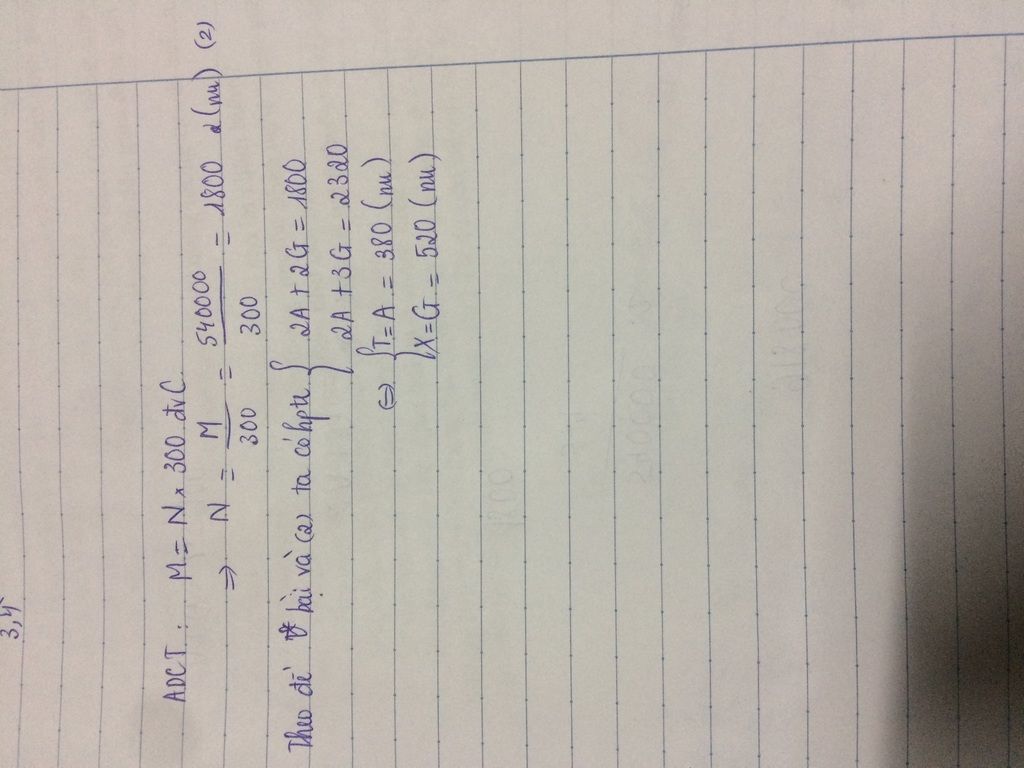 3,4
ADCT : M = N × 300 đvC
⇒ N = M/300 = 540000/300 = 1800 (nu) (2)
Theo đề bài và (2) ta có hpt { 2A + 2G = 1800
2A + 3G = 2320
⇔ { T = A = 380 (nu)
X = G = 520 (nu)